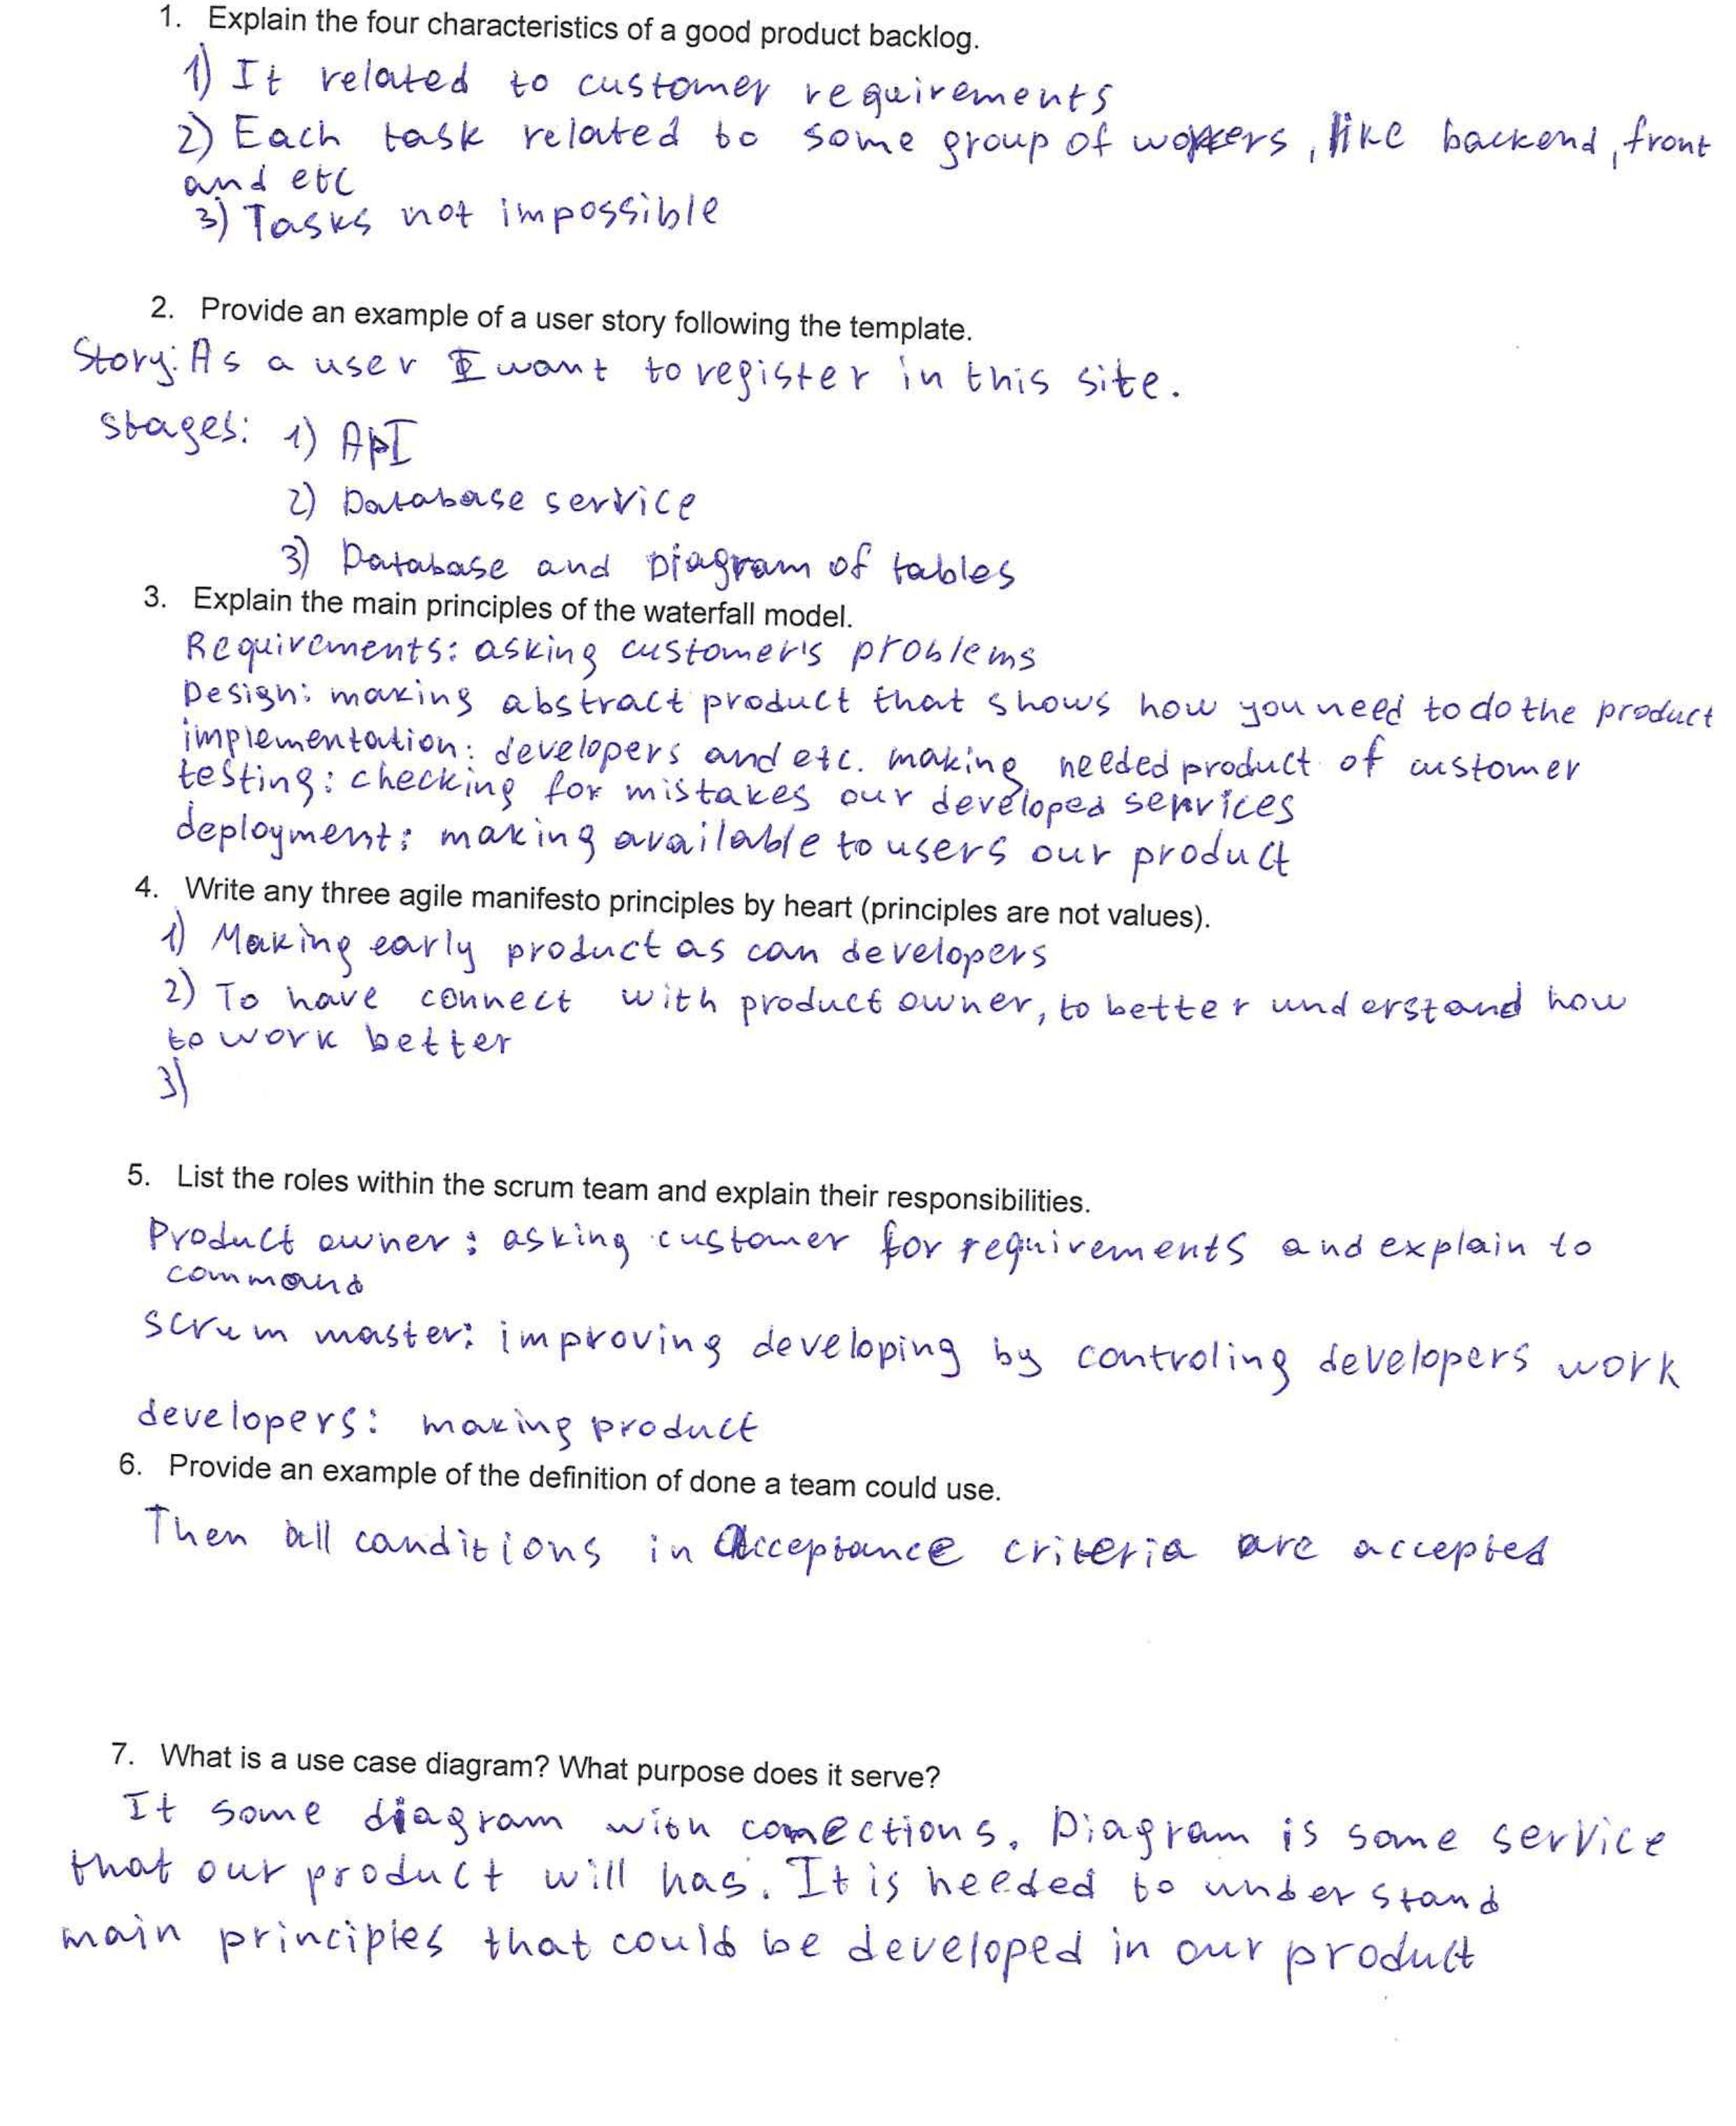 1. Explain the four characteristics of a good product backlog.
1) It related to customer requirements
2) Each task related to some group of workers, like backend, front
and etc
3) Tasks not impossible
2. Provide an example of a user story following the template.
Story: As a user I want to register in this site.
Stages: 1) API
2) Database service
3) Database and Diagram of tables
3. Explain the main principles of the waterfall model.
Requirements: asking customer's problems
Design: making abstract product that shows how you need to do the product
implementation: developers and etc. making needed product of customer
testing: checking for mistakes our developed services
deployment: making available to users our product
4. Write any three agile manifesto principles by heart (principles are not values).
1) Making early product as can developers
2) To have connect with product owner, to better understand how
to work better
3)
5. List the roles within the scrum team and explain their responsibilities.
Product owner: asking customer for requirements and explain to
command
Scrum master: improving developing by controling developers work
developers: making product
6. Provide an example of the definition of done a team could use.
Then all conditions in Acceptance criteria are accepted
7. What is a use case diagram? What purpose does it serve?
It some diagram with conections. Diagram is some service
that our product will has. It is needed to understand
main principles that could be developed in our product